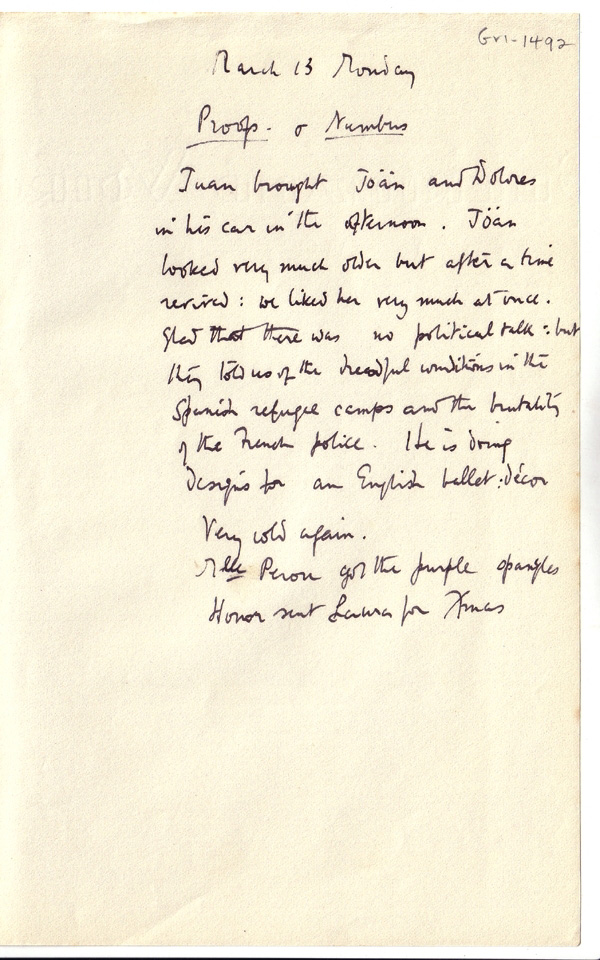 GR1-1492
March 13 Monday
Proofs. o Numbers
Juan brought Jöän and Dolores
in his car in the afternoon. Jöán
looked very much older but after a time
revived: we liked her very much at once.
Glad that there was no political talk: but
they told us of the dreadful conditions in the
Spanish refugee camps and the brutality
of the French police. He is doing
Designs for an English ballet: décor
Very cold again.
Mlle Peron got the purple spangles
Honor sent Laura for Xmas